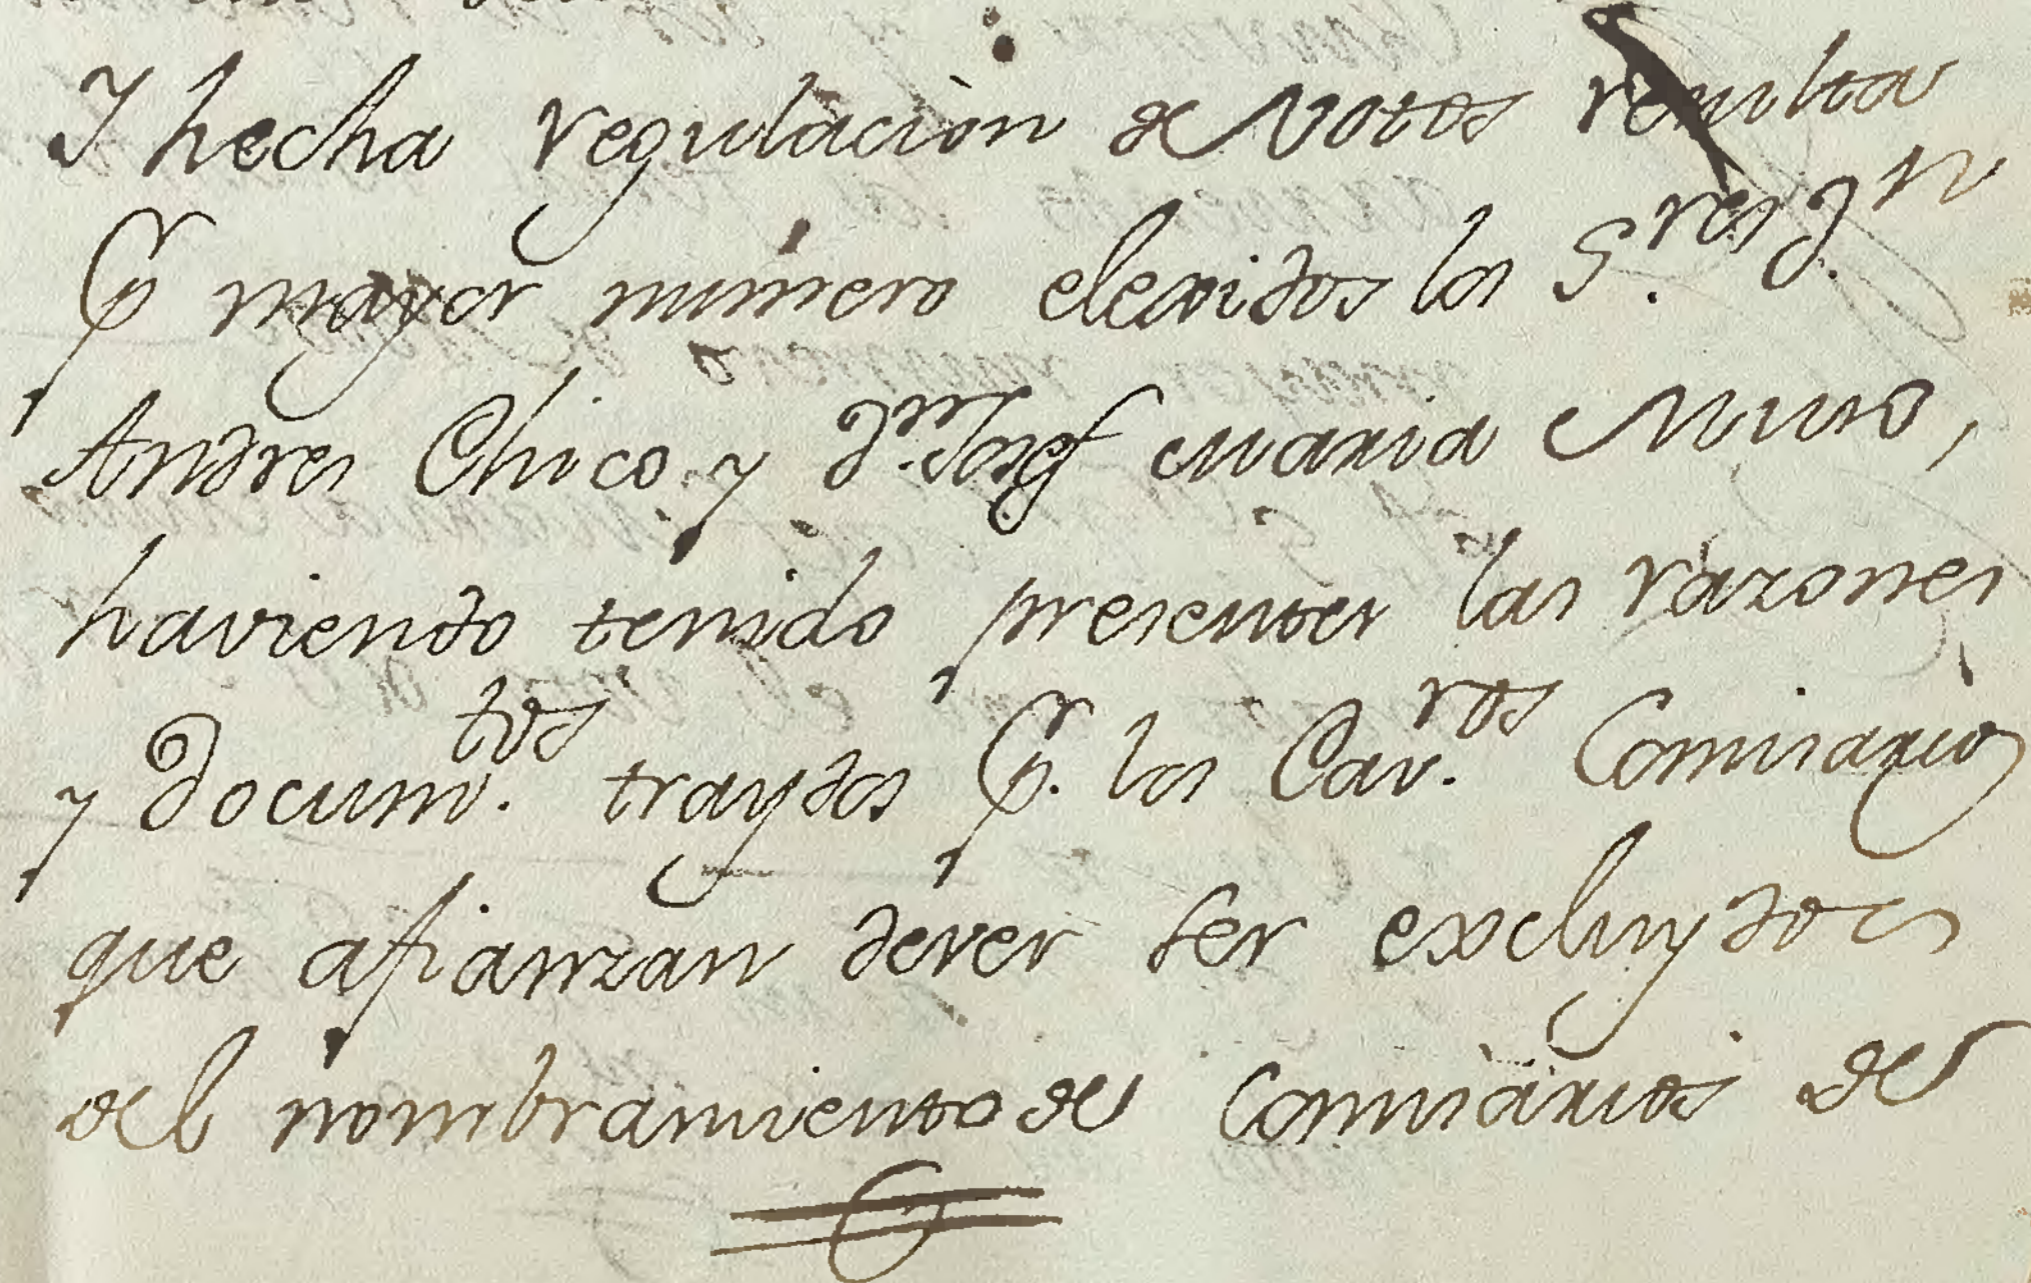 Y hecha regulacion de Votos resulta
pr mayor numero elexidos los S.res Dn
Andres Chico, y D.n Josef Maria Muso,
haviendo tenido presentes las razones
y Docum.tos traydos pr. los Cav.ros Comisarios
que afianzan dever ser excluydos
del nombramiento de Comisarios de